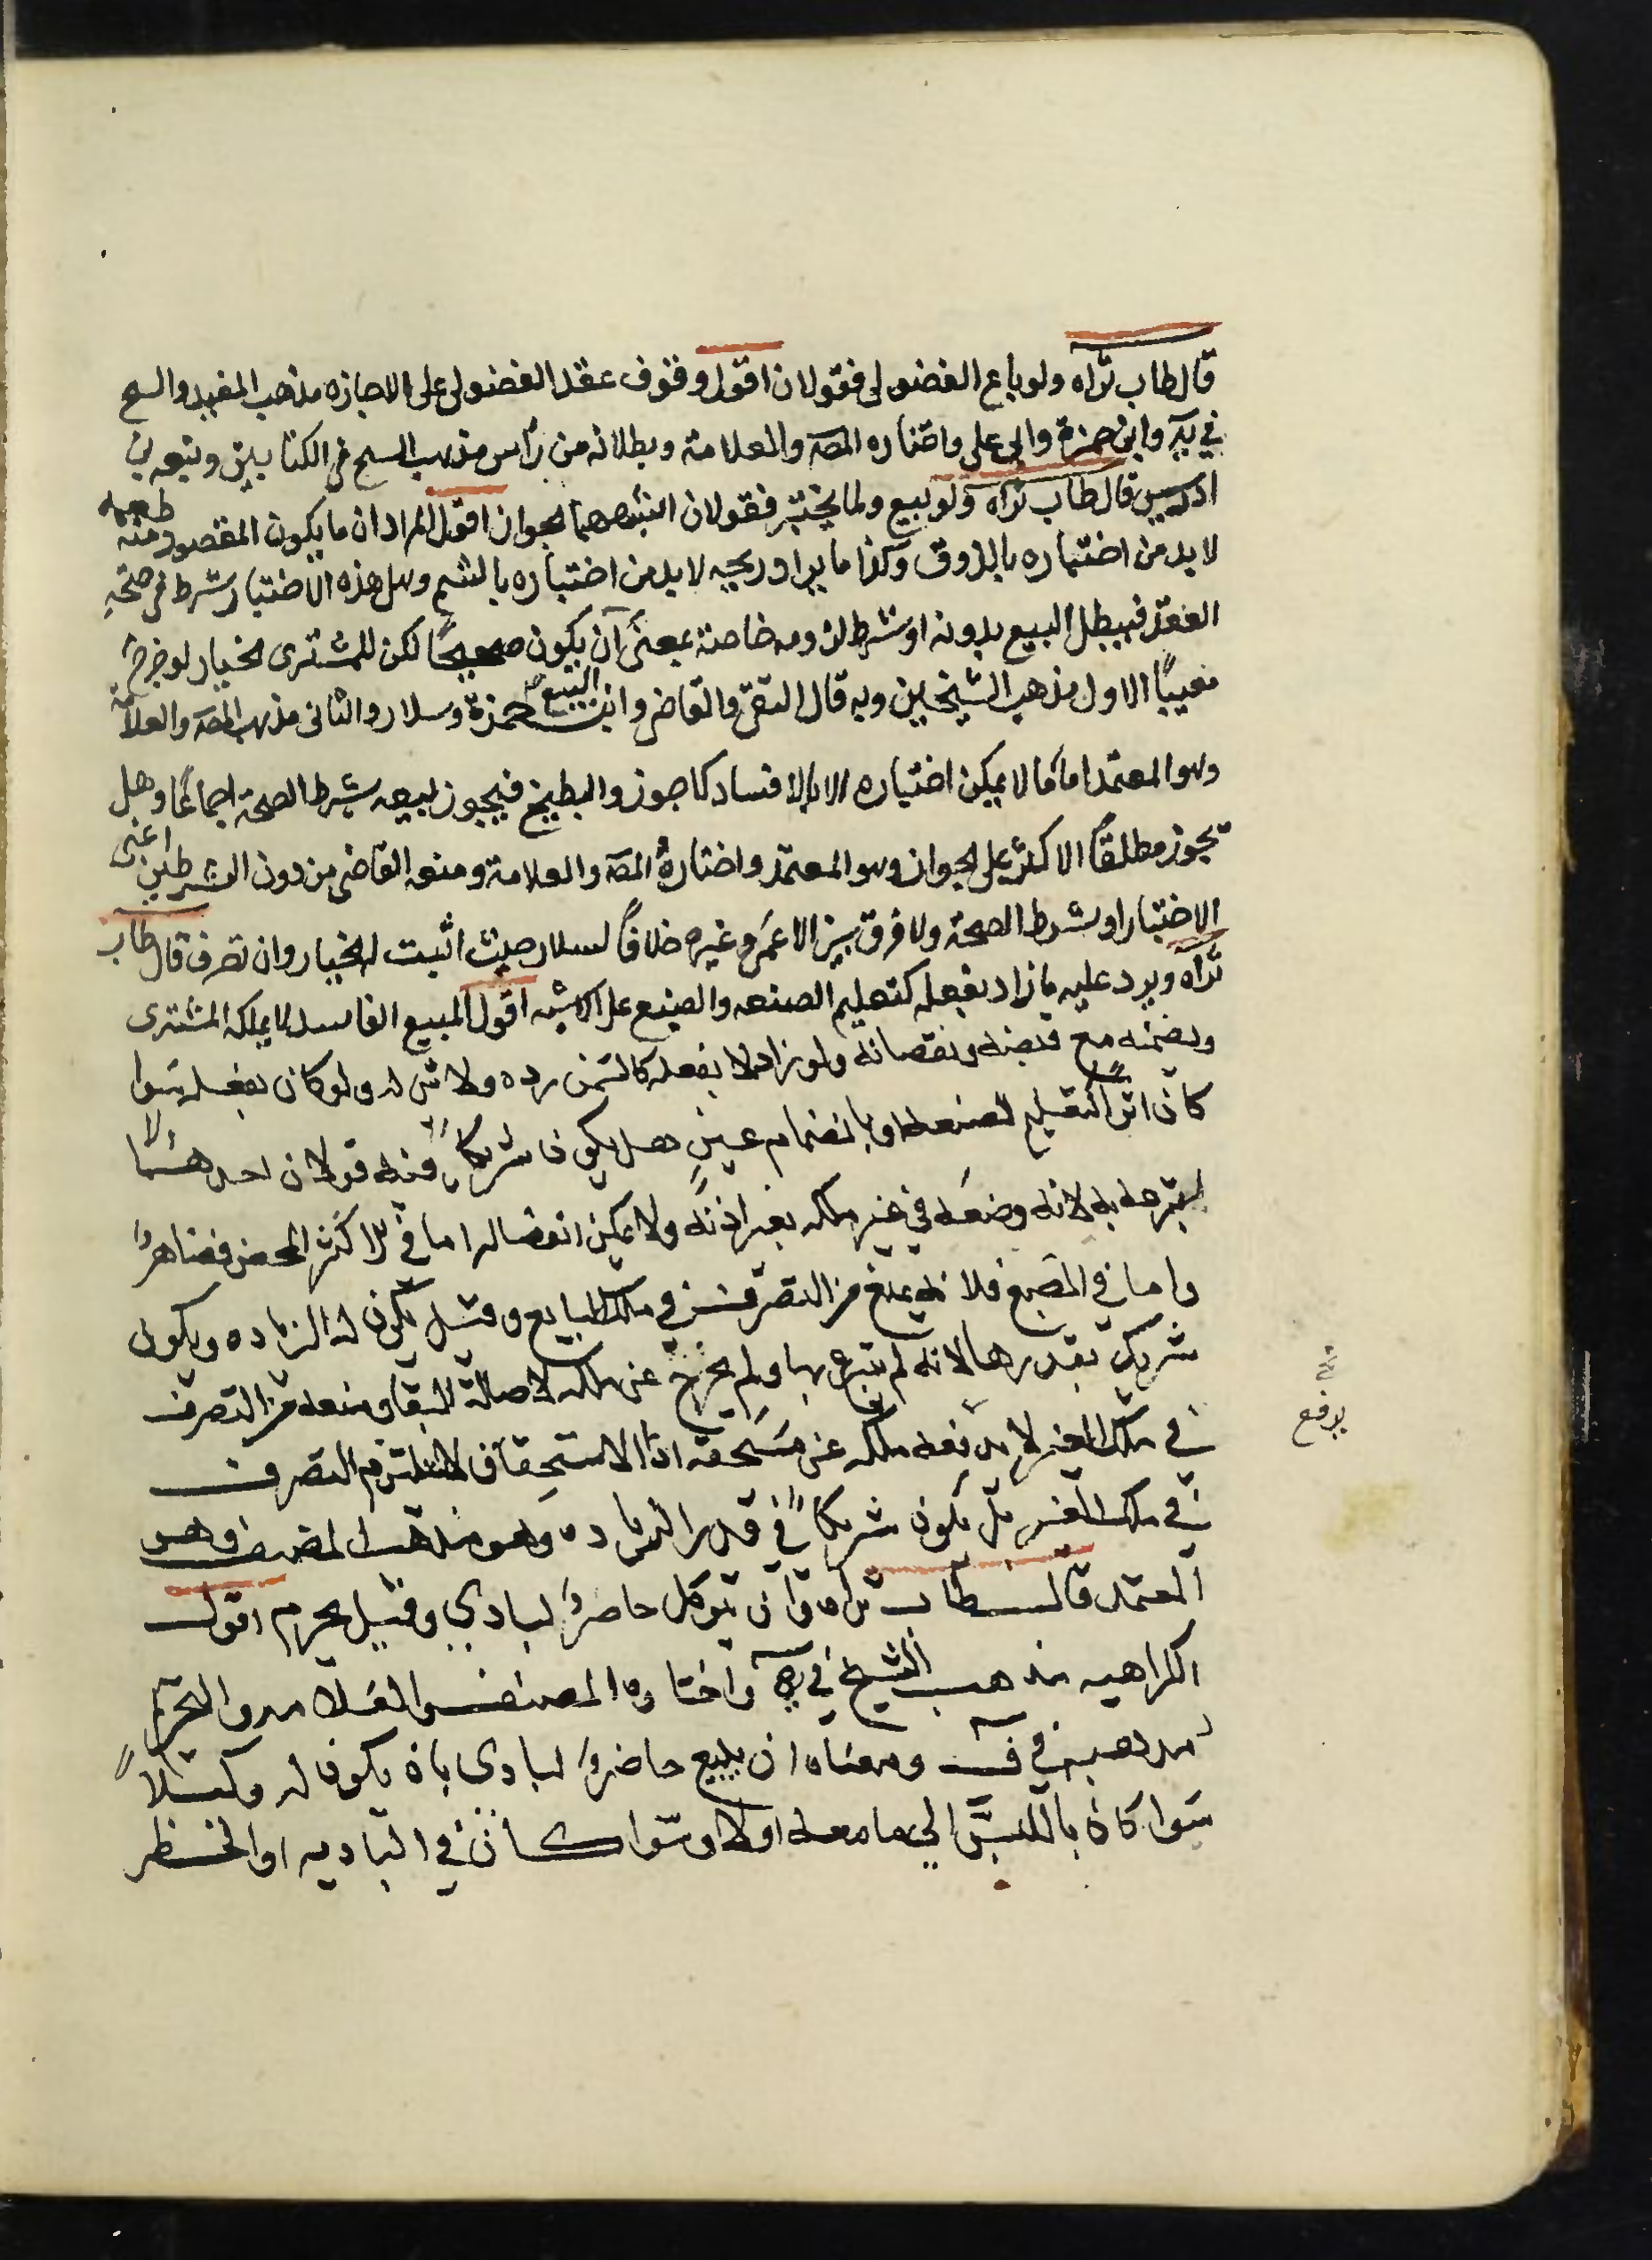 قال طاب ثراه ولو باع الفضولى فقولان اقول وقوف عقد الفضولى على الاجازه مذهب المفيد والشيخ
في يه وابن حمزة وابى على واختاره المصه والعلامة وبطلانه من راس مذهب الشيخ فى الكتابين وتبعه بن
ادريس قال طاب ثراه ولو بيع ولما يختبر فقولان اشبههما الجواز اقول المراد ان ما يكون المقصود منه طعمه
لا بد من اختباره بالذوق وكذا ما يراد ريحه لا بد من اختباره بالشم وهل هذه الاختبار شرط فى صحة
العقد فيبطل البيع بدونه او شرط لزومه خاصة بمعنى ان يكون البيع صحيحًا لكن للمشترى الخيار لو خرج
معيبًا الاول مذهب الشيخين وبه قال التقى والقاضى وابن حمزة وسلار والثانى مذهب المصه والعلامة
وهو المعتمد اما ما لا يمكن اختباره الا بالافساد كالجوز والبطيخ فيجوز بيعه بشرط الصحة اجماعًا وهل
يجوز مطلقًا الاكثر على الجواز وهو المعتمد واختاره المصه والعلامة ومنعه القاضى من دون الشرطين اعنى
الاختبار او شرط الصحة ولا فرق بين الاعمى وغيره خلافًا لسلار حيث اثبت له الخيار وان تصرف قال طاب
ثراه ويرد عليه ما زاد بفعله كتعليم الصنعه والصبغ على الاشبه اقول المبيع الفاسد لا يملكه المشترى
ويضمنه مع قبضه ونقصانه ولو زاد لا بفعله كالسمن رده ولا شى له ولو كان بفعله سوا
كان اثرًا كتعليم الصنعه او بانضمام عين هل يكون شريكًا فيه قولان احدهما لا
لتبرعه به لانه وضعه في غير ملكه بغير اذنه ولا يمكن انفصاله اما في الاثر المحض فظاهر
واما في الصبغ فلانه يمنع من التصرف في ملك البايع وقيل يكون له الزياده ويكون
شريك بقدرها لانه لم يتبرع بها ولم يخرج عن ملكه لاصالة البقا ومنعه من التصرف
في ملك الغير لا يدفعه ملكه عن مستحقه اذ الاستحقاق لا يستلزم التصرف
في ملك الغير بل يكون شريكًا في قدر الزياده وهو مذهب المصنف وهو
المعتمد قال طاب ثراه وان يتوكل حاضر لبادي وقيل يحرم اقول
الكراهيه مذهب الشيخ في يه واختاره المصنف والعلامه والتحريم
مذهبه في ف ومعناه ان يبيع حاضر لبادي بان يكون له وكيلًا
سوا كان بالنسبة الي ما معه اولا وسوا كان في الباديه او الحضر
نخ
يدفع